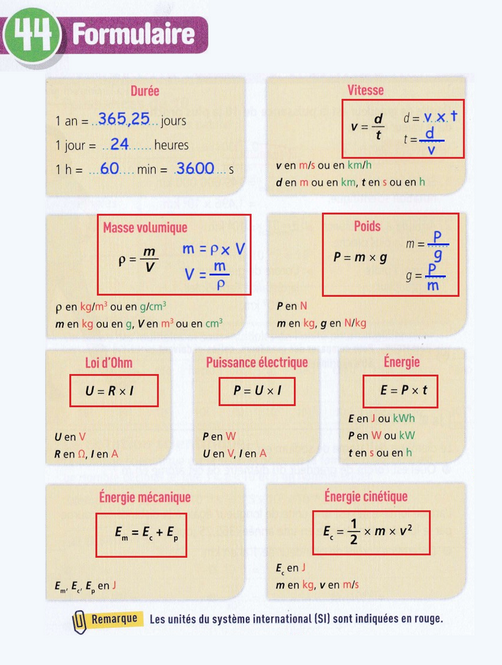 44 Formulaire
Durée
1 an = ..365,25.. jours
1 jour = ..24...... heures
1 h = ...60.... min = .3600... s
Vitesse
v = d/t
d = .v.x.t
t = d/v
v en m/s ou en km/h
d en m ou en km, t en s ou en h
Masse volumique
ρ = m/V
m = ρ x V
V = m/ρ
ρ en kg/m³ ou en g/cm³
m en kg ou en g, V en m³ ou en cm³
Poids
P = m × g
m = P/g
g = P/m
P en N
m en kg, g en N/kg
Loi d'Ohm
U = R × I
U en V
R en Ω, I en A
Puissance électrique
P = U × I
P en W
U en V, I en A
Énergie
E = P × t
E en J ou kWh
P en W ou kW
t en s ou en h
Énergie mécanique
Em = Ec + Ep
Em, Ec, Ep en J
Énergie cinétique
Ec = 1/2 × m × v²
Ec en J
m en kg, v en m/s
Remarque Les unités du système international (SI) sont indiquées en rouge.